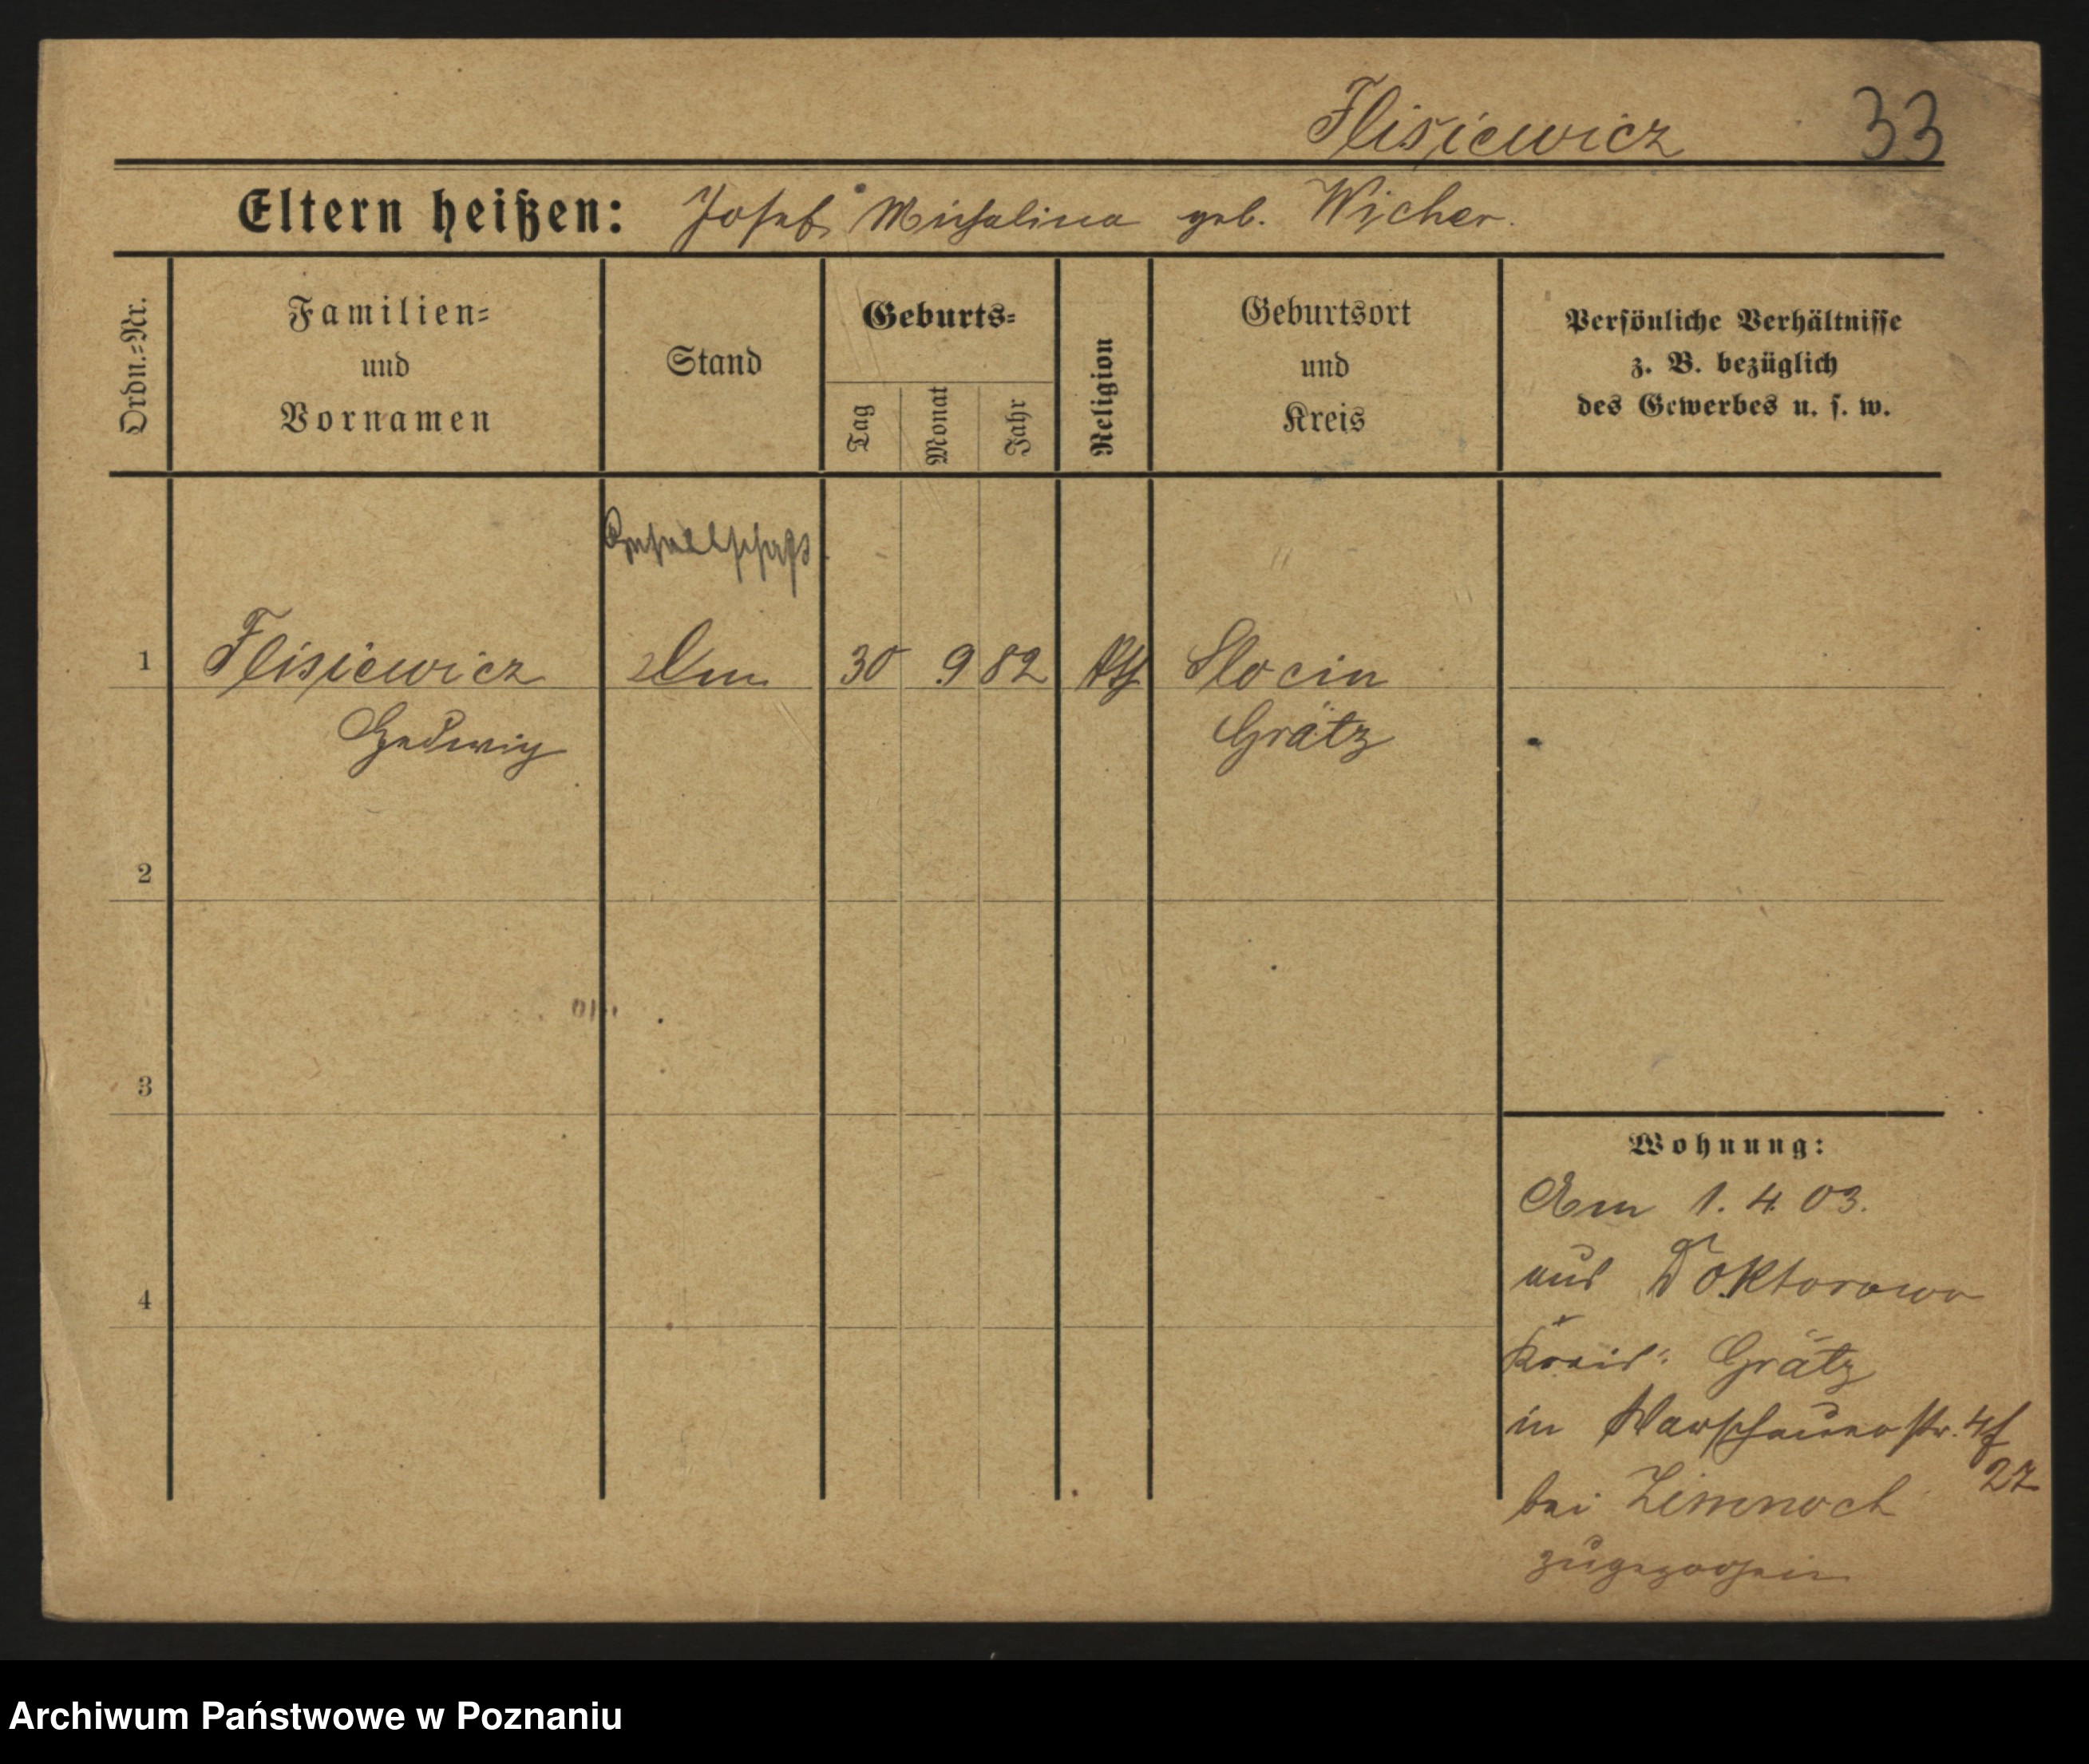 Flisiewicz 33
Eltern heißen: Josef, Michalina geb. Wicher.
Ordn.=Nr.
Familien=
und
Vornamen
Stand
Geburts=
Tag
Monat
Jahr
Religion
Geburtsort
und
Kreis
Persönliche Verhältnisse
z. B. bezüglich
des Gewerbes u. s. w.
1 Flisiewicz 30 9 82 kth Slocin
Hedwig Grätz
2
3
4
Wohnung:
Am 1. 4. 03.
aus Doktorowo
Kreis: Grätz
in Warschauerstr. 4
27
bei Zimnoch
zugezogen
Archiwum Państwowe w Poznaniu